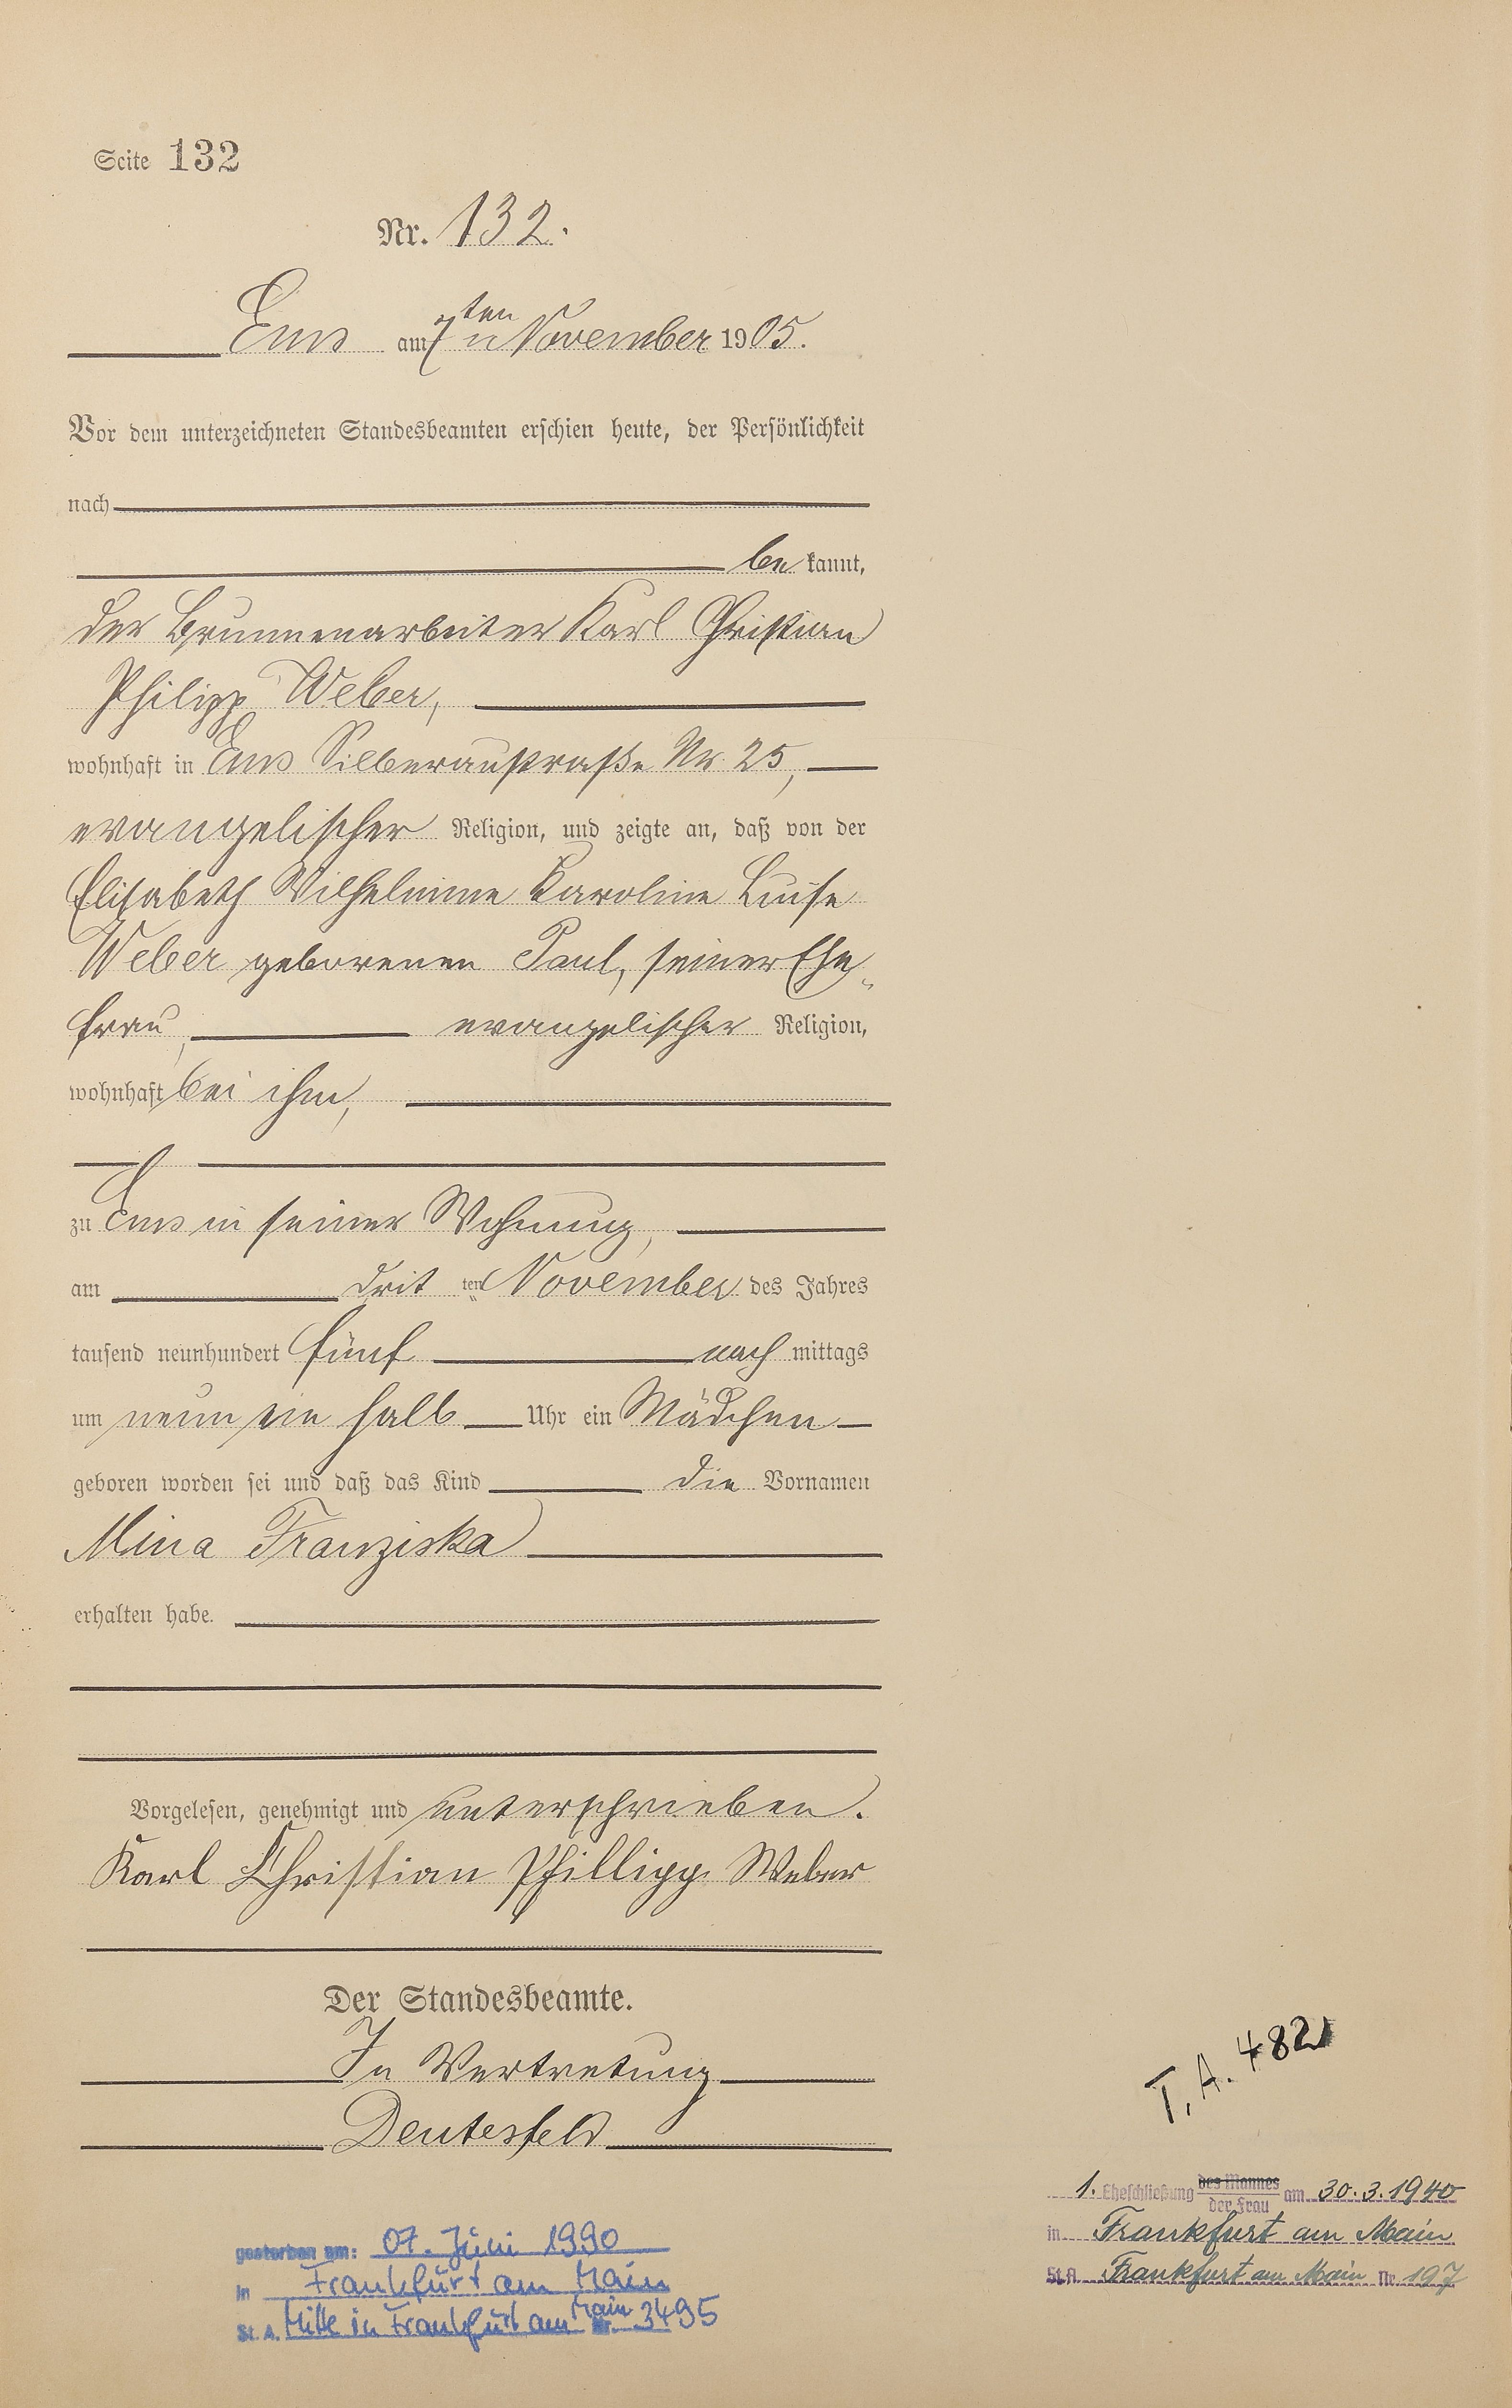 Seite 132
Nr. 132.
Ems am 7ten November 1905.
Vor dem unterzeichneten Standesbeamten erschien heute, der Persönlichkeit
nach
be kannt,
der Brunnenarbeiter Karl Christian
Philipp Weber,
wohnhaft in Ems Silberaustraße Nr. 25,
evangelischer Religion, und zeigte an, daß von der
Elisabeth Wilhelmine Karoline Luise
Weber geborenen Paul, seiner Ehe-
frau, evangelischer Religion,
wohnhaft bei ihm,
zu Ems in seiner Wohnung,
am drit ten November des Jahres
tausend neunhundert fünf nach mittags
um neun ein halb Uhr ein Mädchen
geboren worden sei und daß das Kind die Vornamen
Mina Franziska
erhalten habe.
Vorgelesen, genehmigt und unterschrieben.
Karl Christian Phillipp Weber
Der Standesbeamte.
In Vertretung
Deutesfeld
T. A. 482
1. Eheschließung des Mannes
der Frau am 30.3.1940
in Frankfurt am Main
St.A. Frankfurt am Main Nr. 197
gestorben am: 07. Juni 1990
in Frankfurt am Main
St. A. Mitte in Frankfurt am Main Nr. 3495